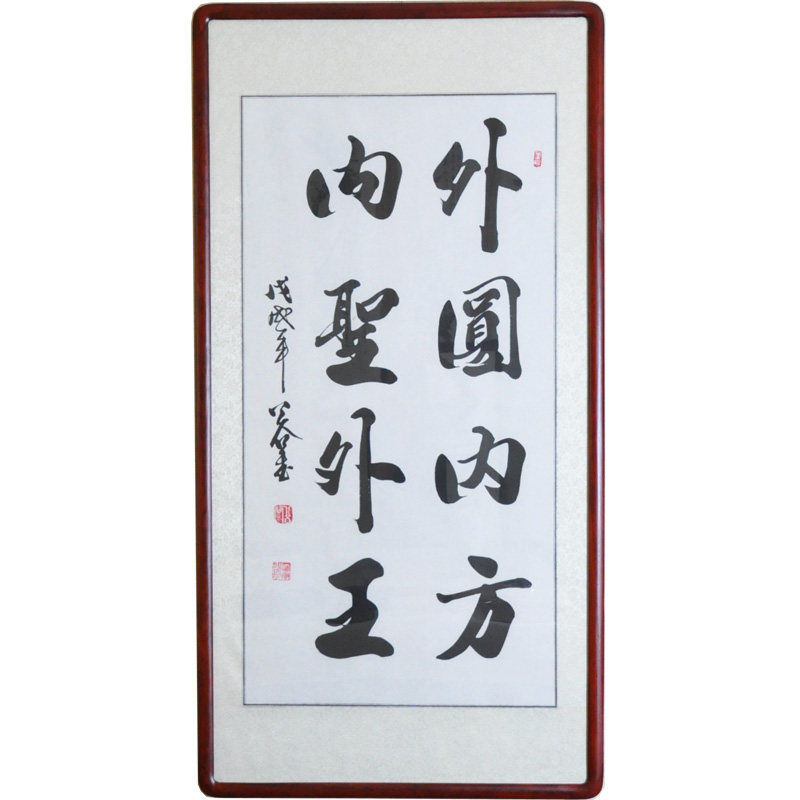 外圓内方
内聖外王
戊戌年